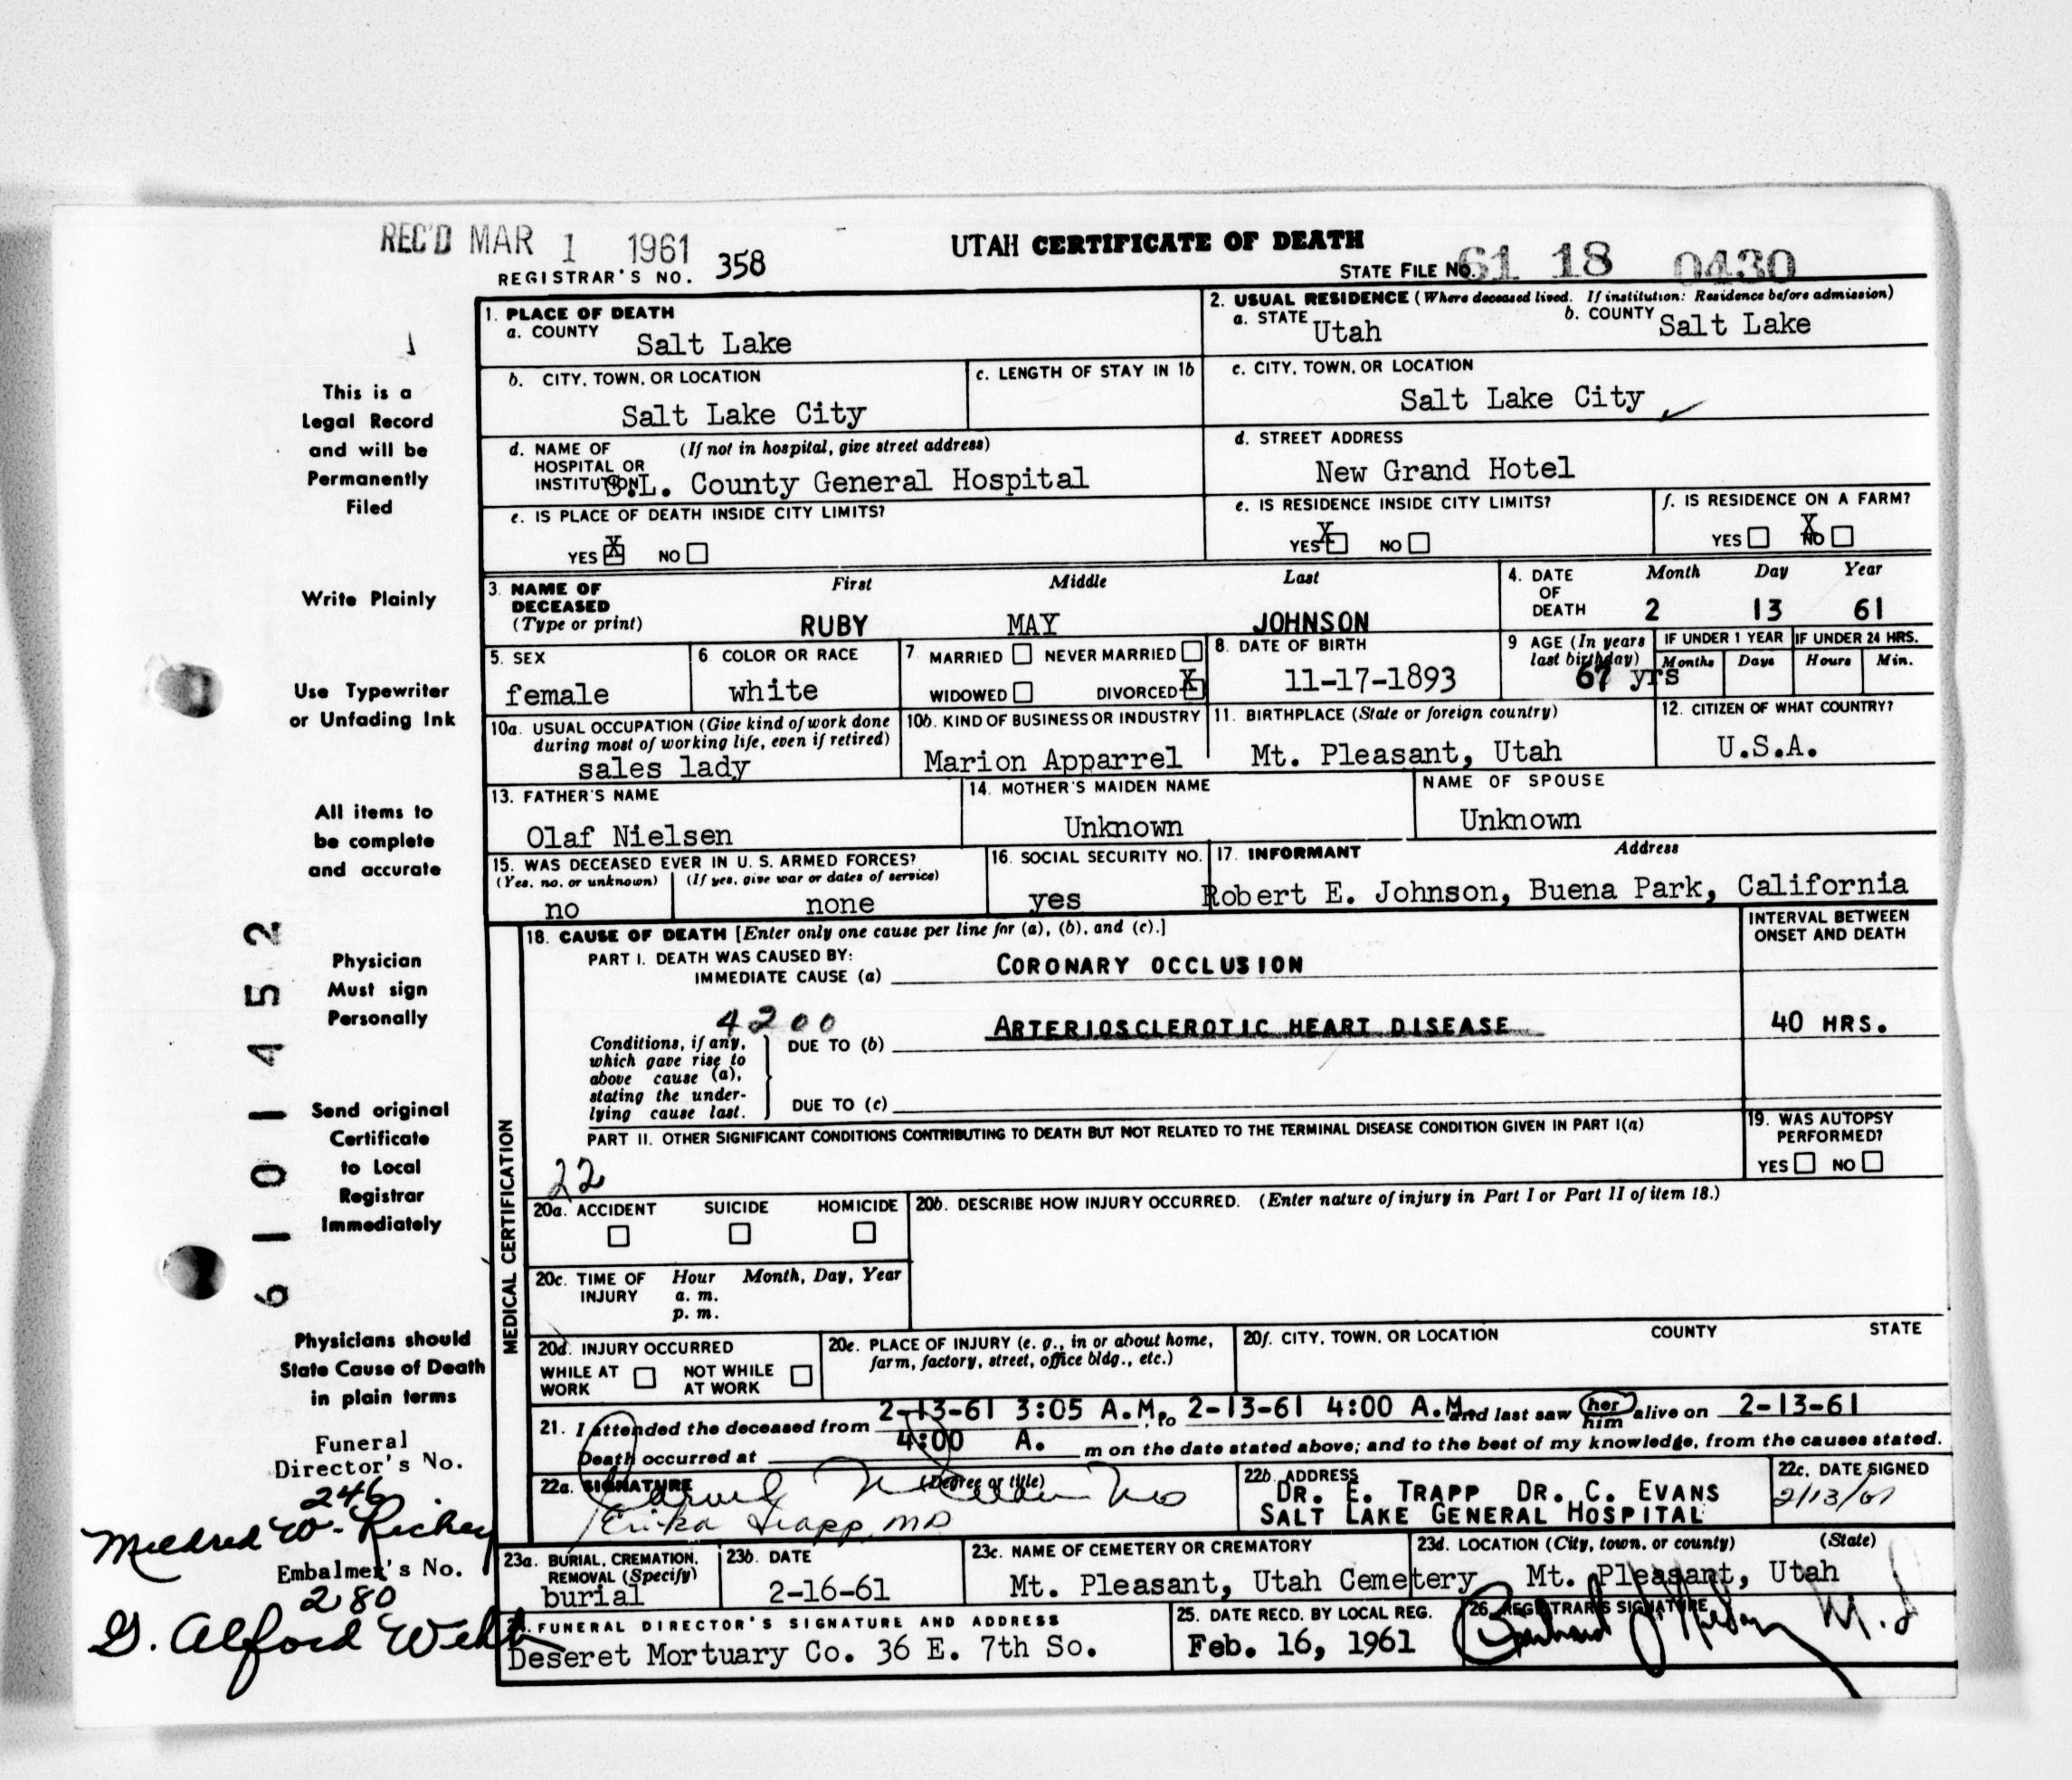 REC'D MAR 1 1961
REGISTRAR'S NO. 358
UTAH CERTIFICATE OF DEATH
STATE FILE NO. 61 18 0430
This is a
Legal Record
and will be
Permanently
Filed
Write Plainly
Use Typewriter
or Unfading Ink
All items to
be complete
and accurate
Physician
Must sign
Personally
Send original
Certificate
to Local
Registrar
Immediately
Physicians should
State Cause of Death
in plain terms
Funeral
Director's No.
246
Mildred W. Richey
Embalmer's No.
280
G. Alford Webb
6 1 0 1 4 5 2
1. PLACE OF DEATH
a. COUNTY
Salt Lake
2. USUAL RESIDENCE (Where deceased lived. If institution: Residence before admission)
a. STATE Utah
b. COUNTY Salt Lake
b. CITY, TOWN, OR LOCATION
Salt Lake City
c. LENGTH OF STAY IN 1b
c. CITY, TOWN, OR LOCATION
Salt Lake City
d. NAME OF (If not in hospital, give street address)
HOSPITAL OR
INSTITUTION S.L. County General Hospital
d. STREET ADDRESS
New Grand Hotel
e. IS PLACE OF DEATH INSIDE CITY LIMITS?
YES X NO
e. IS RESIDENCE INSIDE CITY LIMITS?
YES X NO
f. IS RESIDENCE ON A FARM?
YES NO X
3. NAME OF
DECEASED
(Type or print)
First Middle Last
RUBY MAY JOHNSON
4. DATE
OF
DEATH
Month Day Year
2 13 61
5. SEX
female
6. COLOR OR RACE
white
7. MARRIED NEVER MARRIED
WIDOWED DIVORCED X
8. DATE OF BIRTH
11-17-1893
9 AGE (In years
last birthday)
67 yrs
IF UNDER 1 YEAR
Months Days
IF UNDER 24 HRS.
Hours Min.
10a. USUAL OCCUPATION (Give kind of work done
during most of working life, even if retired)
sales lady
10b. KIND OF BUSINESS OR INDUSTRY
Marion Apparrel
11. BIRTHPLACE (State or foreign country)
Mt. Pleasant, Utah
12. CITIZEN OF WHAT COUNTRY?
U.S.A.
13. FATHER'S NAME
Olaf Nielsen
14. MOTHER'S MAIDEN NAME
Unknown
NAME OF SPOUSE
Unknown
15. WAS DECEASED EVER IN U. S. ARMED FORCES?
(Yes, no, or unknown) (If yes, give war or dates of service)
no none
16. SOCIAL SECURITY NO.
yes
17. INFORMANT Address
Robert E. Johnson, Buena Park, California
MEDICAL CERTIFICATION
18. CAUSE OF DEATH [Enter only one cause per line for (a), (b), and (c).]
PART I. DEATH WAS CAUSED BY:
IMMEDIATE CAUSE (a) CORONARY OCCLUSION
INTERVAL BETWEEN
ONSET AND DEATH
4200
Conditions, if any,
which gave rise to
above cause (a),
stating the under-
lying cause last.
DUE TO (b) ARTERIOSCLEROTIC HEART DISEASE
40 HRS.
DUE TO (c)
PART II. OTHER SIGNIFICANT CONDITIONS CONTRIBUTING TO DEATH BUT NOT RELATED TO THE TERMINAL DISEASE CONDITION GIVEN IN PART I(a)
22
19. WAS AUTOPSY
PERFORMED?
YES NO
20a. ACCIDENT SUICIDE HOMICIDE
20b. DESCRIBE HOW INJURY OCCURRED. (Enter nature of injury in Part I or Part II of item 18.)
20c. TIME OF
INJURY
Hour Month, Day, Year
a. m.
p. m.
20d. INJURY OCCURRED
WHILE AT
WORK
NOT WHILE
AT WORK
20e. PLACE OF INJURY (e. g., in or about home,
farm, factory, street, office bldg., etc.)
20f. CITY, TOWN, OR LOCATION COUNTY STATE
21. I attended the deceased from 2-13-61 3:05 A.M. to 2-13-61 4:00 A.M. and last saw her him alive on 2-13-61
Death occurred at 4:00 A. m on the date stated above; and to the best of my knowledge, from the causes stated.
22a. SIGNATURE (Degree or title)
Erika Trapp, MD
22b. ADDRESS
DR. E. TRAPP DR. C. EVANS
SALT LAKE GENERAL HOSPITAL
22c. DATE SIGNED
2/13/61
23a. BURIAL, CREMATION,
REMOVAL (Specify)
burial
23b. DATE
2-16-61
23c. NAME OF CEMETERY OR CREMATORY
Mt. Pleasant, Utah Cemetery
23d. LOCATION (City, town, or county) (State)
Mt. Pleasant, Utah
FUNERAL DIRECTOR'S SIGNATURE AND ADDRESS
Deseret Mortuary Co. 36 E. 7th So.
25. DATE RECD. BY LOCAL REG.
Feb. 16, 1961
26. REGISTRAR'S SIGNATURE
M.D